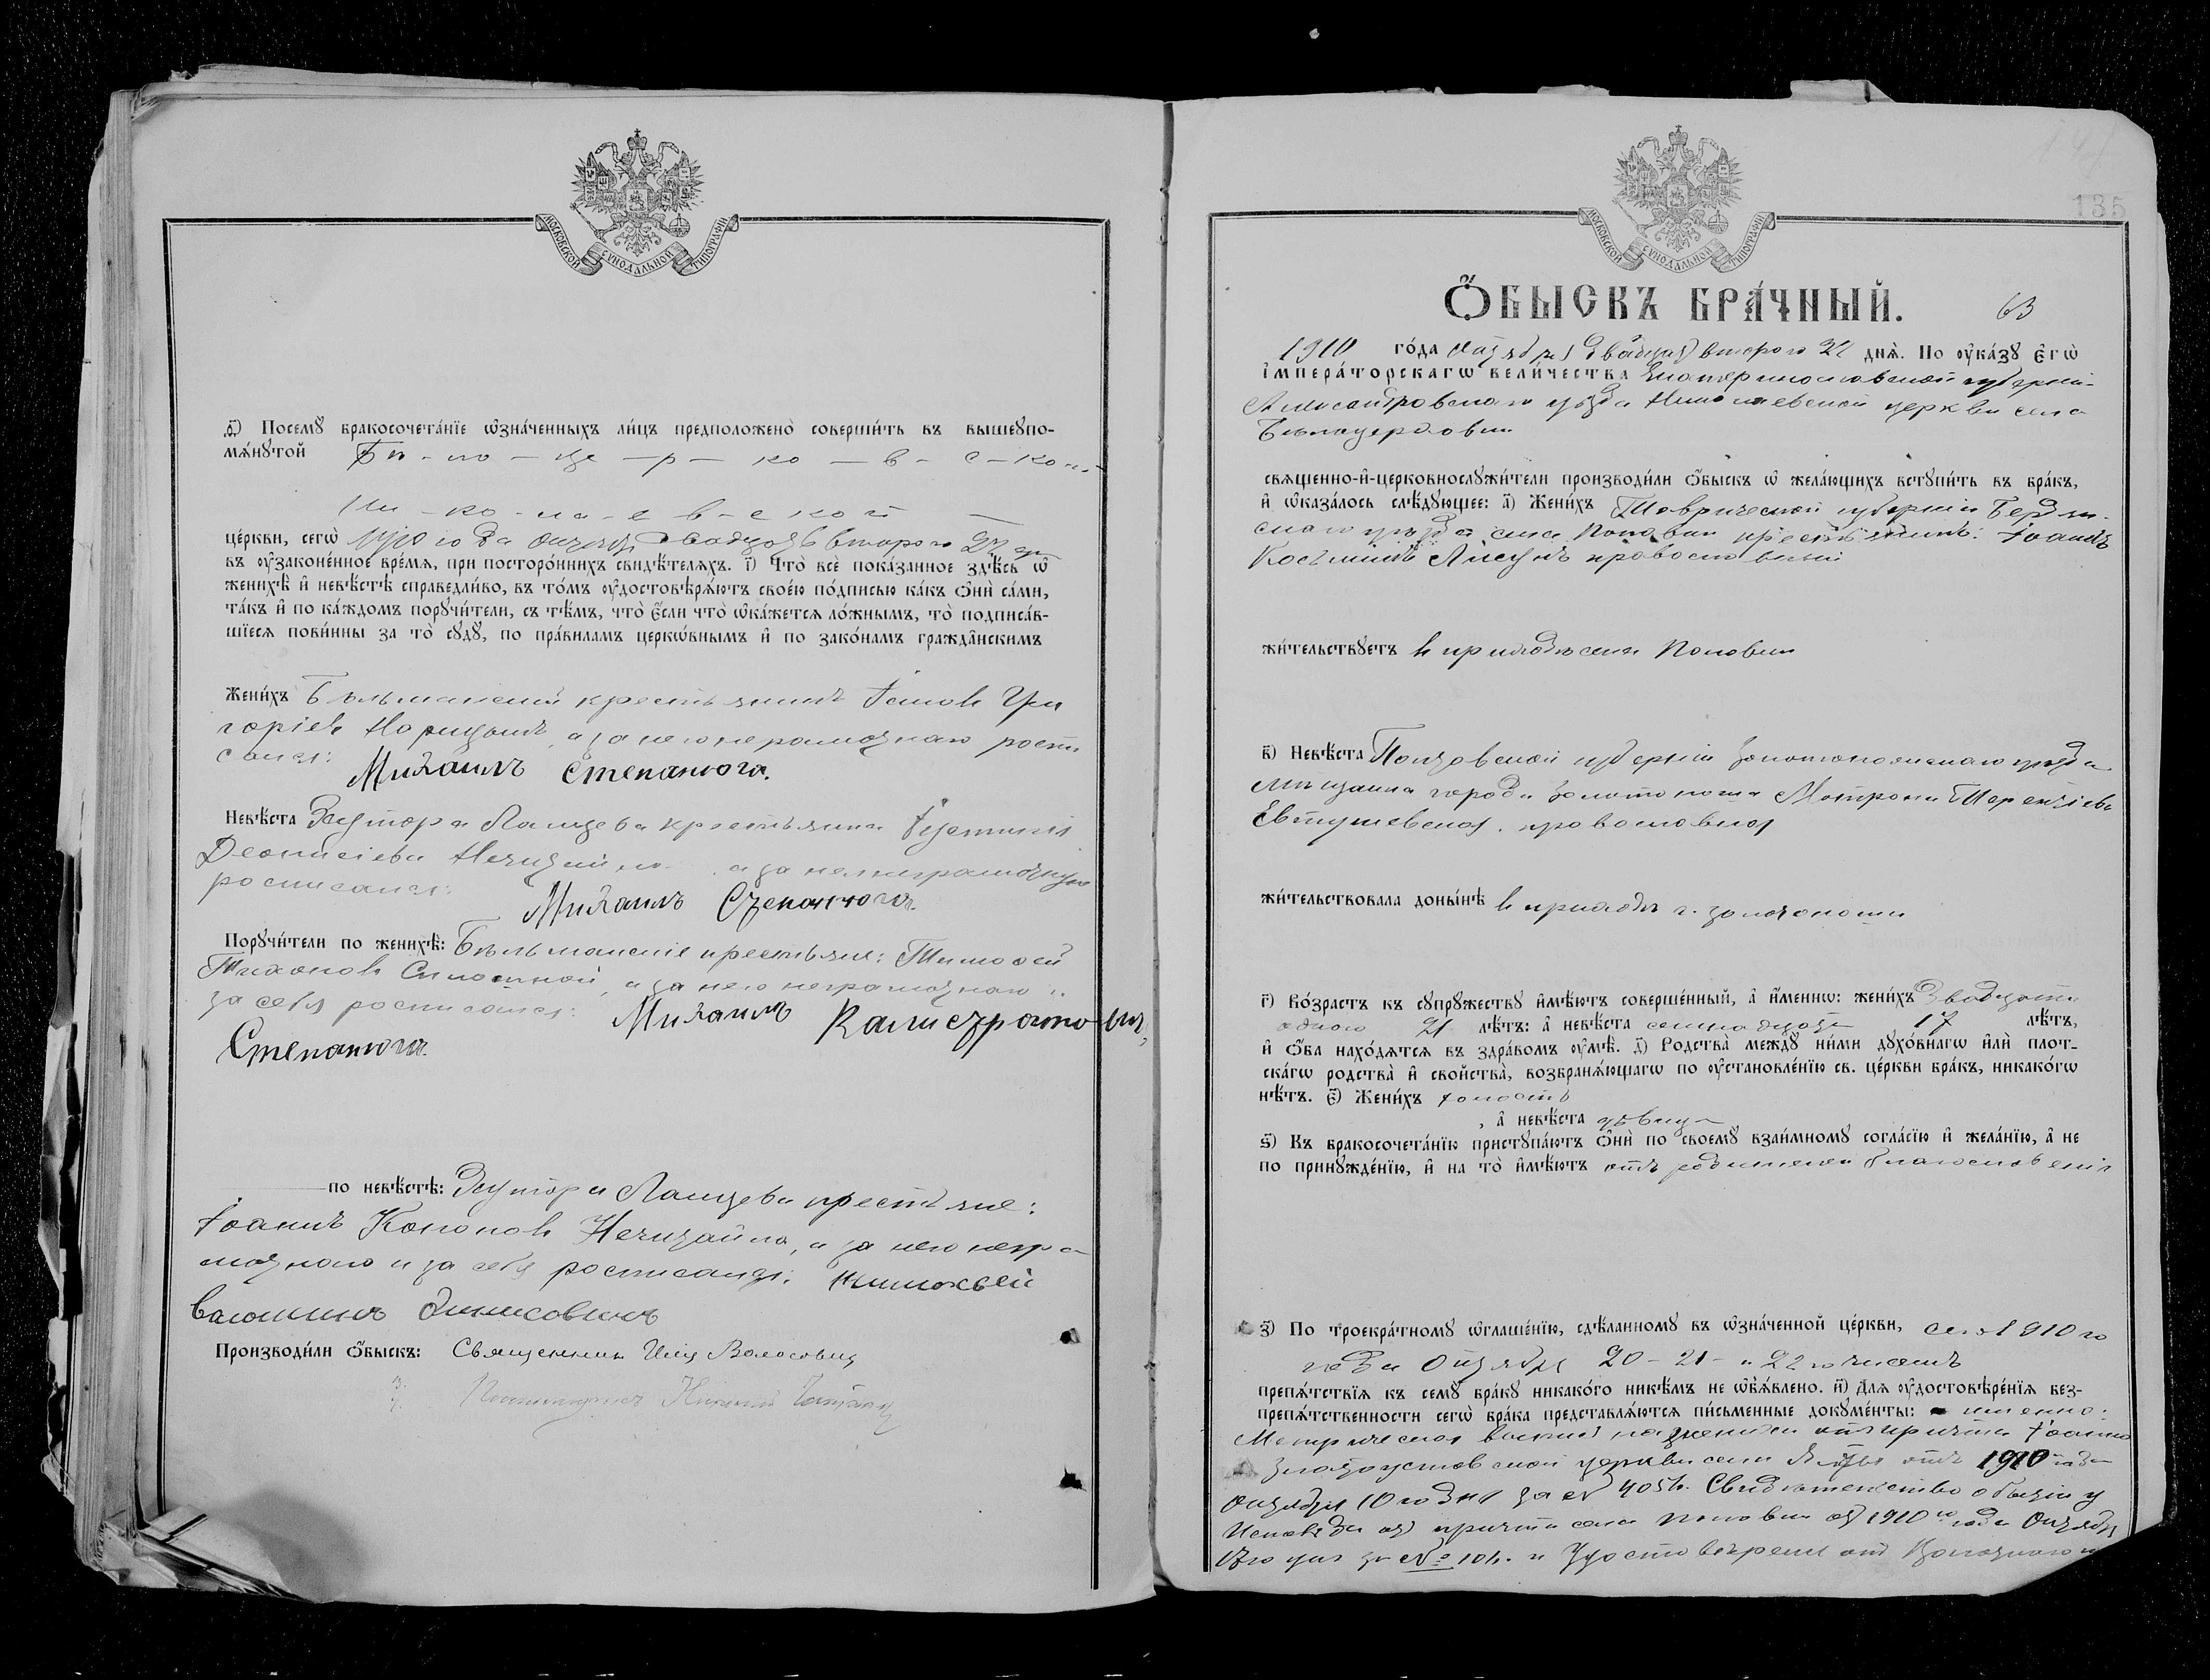 МОСКОВСКОЙ СѴНОДАЛЬНОЙ ТИПОГРАФІИ
ѳ҃) Посемꙋ бракосочета́нїе ѡ҆зна́ченныхъ ли́цъ предположено̀ соверши́ть въ вышеꙋпо-
мѧ́нꙋтой Бѣ - ло - це - р - ко - в - с - кой
Ни - ко - ла - е в - с кой
це́ркви, сегѡ̀ 1910 года Октября двадцать второго 22 дня
въ ᲂу҆законе́нное вре́мѧ, при посторо́ннихъ свидѣ́телѧхъ. і҃) Что̀ всѐ пока́занное здѣ́сь ѡ҆
женихѣ̀ и҆ невѣ́стѣ справедли́во, въ то́мъ ᲂу҆достовѣрѧ́ютъ свое́ю по́дписью ка́къ ѻ҆нѝ са́ми,
та́къ и҆ по ка́ждомъ порꙋчи́тели, съ тѣ́мъ, что̀ є҆́сли что̀ ѡ҆ка́жетсѧ ло́жнымъ, то̀ подписа́в-
шїесѧ пови́нны за то̀ сꙋдꙋ̀, по пра́виламъ церко́внымъ и҆ по зако́намъ гражда̑нскимъ
Жени́хъ Бѣльманскій крестьянинъ Іаковъ Гри
горіевъ а за него неграмотнаго роспи
сался: Михаилъ Степанюга.
Невѣ́ста Хутора Ланцева крестьянка
Деонисіева Нечитайло а за нея неграмотную
росписался: Михаилъ Степанюга.
Порꙋчи́тели по женихѣ̀: Бѣльманскіе крестьяне: Тимофей
Тихоновъ а за него неграмотнаго и
за себя росписался: Михаилъ Калистратовичъ
Степанюга.
по невѣ́стѣ: Хутора Ланцева крестьяне:
Іоаннъ Кононовъ Нечитайло, а за него негра
мотнаго и за себя росписался:
Производи́ли ѻ҆́быскъ: Священникъ Илія Волосовичъ
МОСКОВСКОЙ СѴНОДАЛЬНОЙ ТИПОГРАФІИ
135
Ѻ҆́БЫСКЪ БРА́ЧНЫЙ. 63
1910 го́да Октября двадцать второго 22 днѧ̀. По ᲂу҆ка́зꙋ є҆гѡ̀
і҆мпера́торскагѡ вели́чества Екатеринославской губерніи
Александровскаго уѣзда Николаевской церкви села
Бѣлоцерковки
свѧщенно-и҆-церковнослꙋжи́тели производи́ли ѻ҆́быскъ ѡ҆ жела́ющихъ встꙋпи́ть въ бра́къ,
и҆ ѡ҆каза́лось слѣ́дꙋющее: а҃) Жени́хъ Таврической губерніи Бердян
скаго уѣзда села Поповки крестьянинъ: Іоаннъ
Косьминъ Лисунъ православный
жи́тельствꙋетъ въ приходѣ села Поповки
в҃) Невѣ́ста Полтавской губерніи Золотоношскаго уѣзда
мѣщанка города Золотоноша Матрона Терентіева
Евтушевская. православная
жи́тельствовала доны́нѣ въ приходѣ г. Золотоноши
г҃) Во́зрастъ къ сꙋпрꙋ́жествꙋ и҆мѣ́ютъ соверше́нный, а҆ и҆́менно: жени́хъ двадцать
одного 21 лѣ́тъ: а҆ невѣ́ста семнадцать 17 лѣ́тъ,
и҆ ѻ҆́ба нахо́дѧтсѧ въ здра́вомъ ᲂу҆мѣ̀. д҃) Родства̀ междꙋ̀ ни́ми дꙋхо́внагѡ и҆лѝ плот-
ска́гѡ родства̀ и҆ свойства̀, возбранѧ́ющагѡ по ᲂу҆становле́нїю св. це́ркви бра́къ, никако́гѡ
нѣ́тъ. є҃) Жени́хъ холостъ
, а҆ невѣ́ста дѣвица
ѕ҃) Къ бракосочета́нїю пристꙋпа́ютъ ѻ҆нѝ по своемꙋ̀ взаи́мномꙋ согла́сїю и҆ жела́нїю, а҆ не
по принꙋжде́нїю, и҆ на то̀ и҆мѣ́ютъ отъ родителей благословеніе
з҃) По троекра́тномꙋ ѡ҆глаше́нїю, сдѣ́ланномꙋ въ ѡ҆зна́ченной це́ркви, сего 1910 го
года Октября 20 - 21 - и 22 го чиселъ
препѧ́тствїѧ къ семꙋ̀ бра́кꙋ никако́го никѣ́мъ не ѡ҆б̾ѧ́влено. и҃) Длѧ ᲂу҆достовѣре́нїѧ без-
препѧ́тственности сегѡ̀ бра́ка представлѧ́ютсѧ пи́сьменные докꙋме́нты: именно:
Метрическая выпись на жениха отъ причта Іоанно
Златоустовской церкви села отъ 1910 года
Октября 10 го дня за № 405 ѣ. Свидѣтельство о бытіи у
Исповѣди отъ причта села Поповки отъ 1910 го года Октября
17 го дня за № 104. и Удостовѣреніе отъ